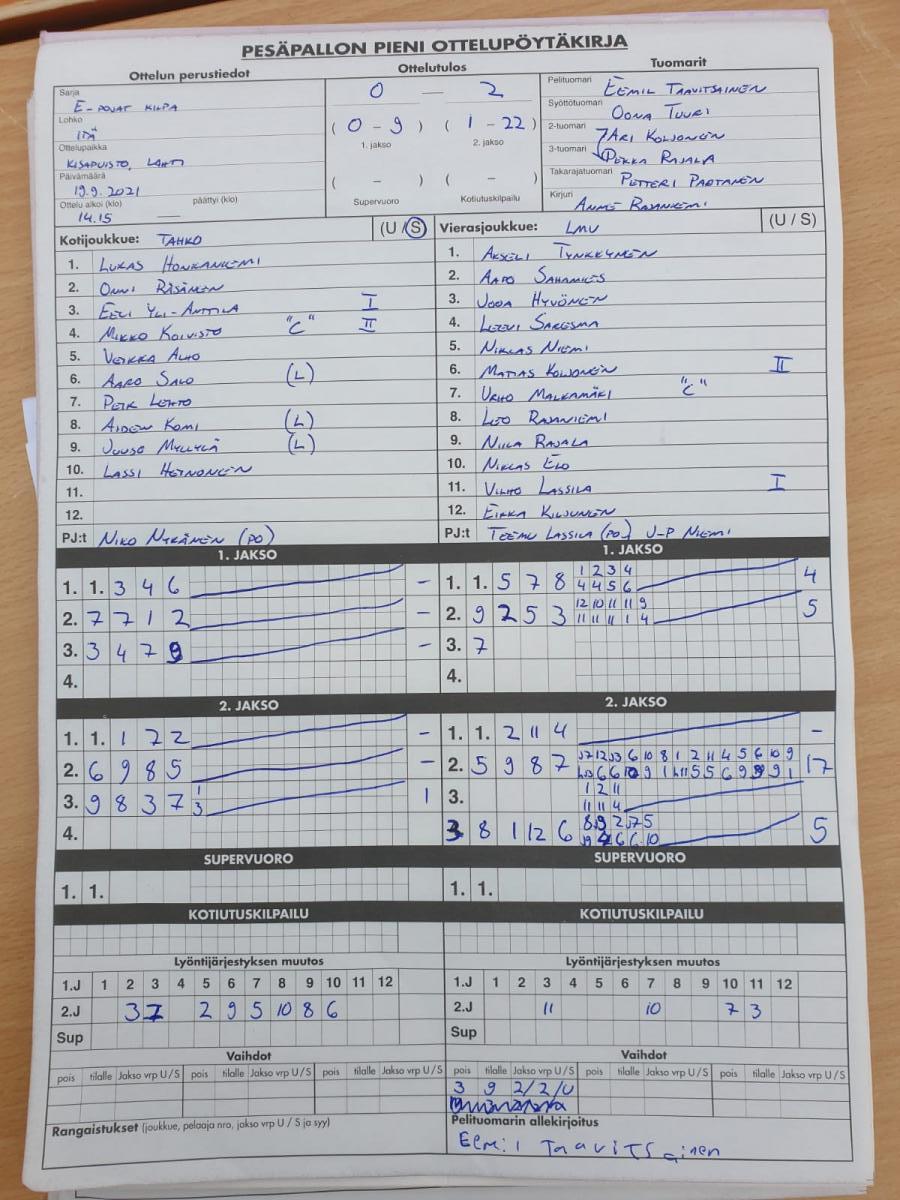 PESÄPALLON PIENI OTTELUPÖYTÄKIRJA
Ottelun perustiedot
Sarja
E-POJAT KILPA
Lohko
ITÄ
Ottelupaikka
KISAPUISTO, LAHTI
Päivämäärä
19.9.2021
Ottelu alkoi (klo) päättyi (klo)
14.15 —
Ottelutulos
0 — 2
( 0 - 9 ) ( 1 - 22 )
1. jakso 2. jakso
( - ) ( - )
Supervuoro Kotiutuskilpailu
Tuomarit
Pelituomari EEMIL TAAVITSAINEN
Syöttötuomari OONA TUURI
2-tuomari JARI KOLJONEN
3-tuomari PEKKA RAJALA
Takarajatuomari PETTERI PARTANEN
Kirjuri ANNE RAJANIEMI
Kotijoukkue: TAHKO (U / S)
1. LUKAS HONKANIEMI
2. ONNI RÄSÄNEN
3. EELI YLI-ANTTILA I
4. MIKKO KOIVISTO "C" II
5. VEIKKA ALHO
6. AARO SALO (L)
7. PETR LEHTO
8. AIDEN KOMI (L)
9. JUUSO MYLLYLÄ (L)
10. LASSI HEINONEN
11.
12.
PJ:t NIKO NYKÄNEN (PO)
Vierasjoukkue: LMV (U / S)
1. AKSELI TYNKKYNEN
2. AAPO SAHAMIES
3. JOOA HYVÖNEN
4. LEEVI SARESMA
5. NIKLAS NIEMI
6. MATIAS KOLJONEN II
7. URHO MALKAMÄKI "C"
8. LEO RAJANIEMI
9. NIILA RAJALA
10. NIKLAS ELO
11. VILHO LASSILA I
12. EIKKA KILJUNEN
PJ:t TEEMU LASSILA (PO) J-P NIEMI
1. JAKSO
1. 1. 3 4 6 –
2. 7 7 1 2 –
3. 3 4 7 9 –
4.
1. JAKSO
1. 1. 5 7 8 1 2 3 4 4
4 4 5 6
2. 9 2 5 3 12 10 11 11 9 5
11 11 11 1 4
3. 7
4.
2. JAKSO
1. 1. 1 7 2 2 –
2. 6 9 8 5 –
3. 9 8 3 7 1 1
3
4.
2. JAKSO
1. 1. 2 11 4 –
2. 5 9 8 7 17
3. 1 2 11
11 11 4
3 8 1 12 6 5
SUPERVUORO
1. 1.
SUPERVUORO
1. 1.
KOTIUTUSKILPAILU
KOTIUTUSKILPAILU
Lyöntijärjestyksen muutos
1.J 1 2 3 4 5 6 7 8 9 10 11 12
2.J 3 7 2 9 5 10 8 6
Sup
Lyöntijärjestyksen muutos
1.J 1 2 3 4 5 6 7 8 9 10 11 12
2.J 11 10 7 3
Sup
Vaihdot
pois tilalle Jakso vrp U / S pois tilalle Jakso vrp U / S pois tilalle Jakso vrp U / S
Vaihdot
pois tilalle Jakso vrp U / S pois tilalle Jakso vrp U / S pois tilalle Jakso vrp U / S
3 9 2/2/U
Rangaistukset (joukkue, pelaaja nro, jakso vrp U / S ja syy)
Pelituomarin allekirjoitus
Eemil Taavitsainen